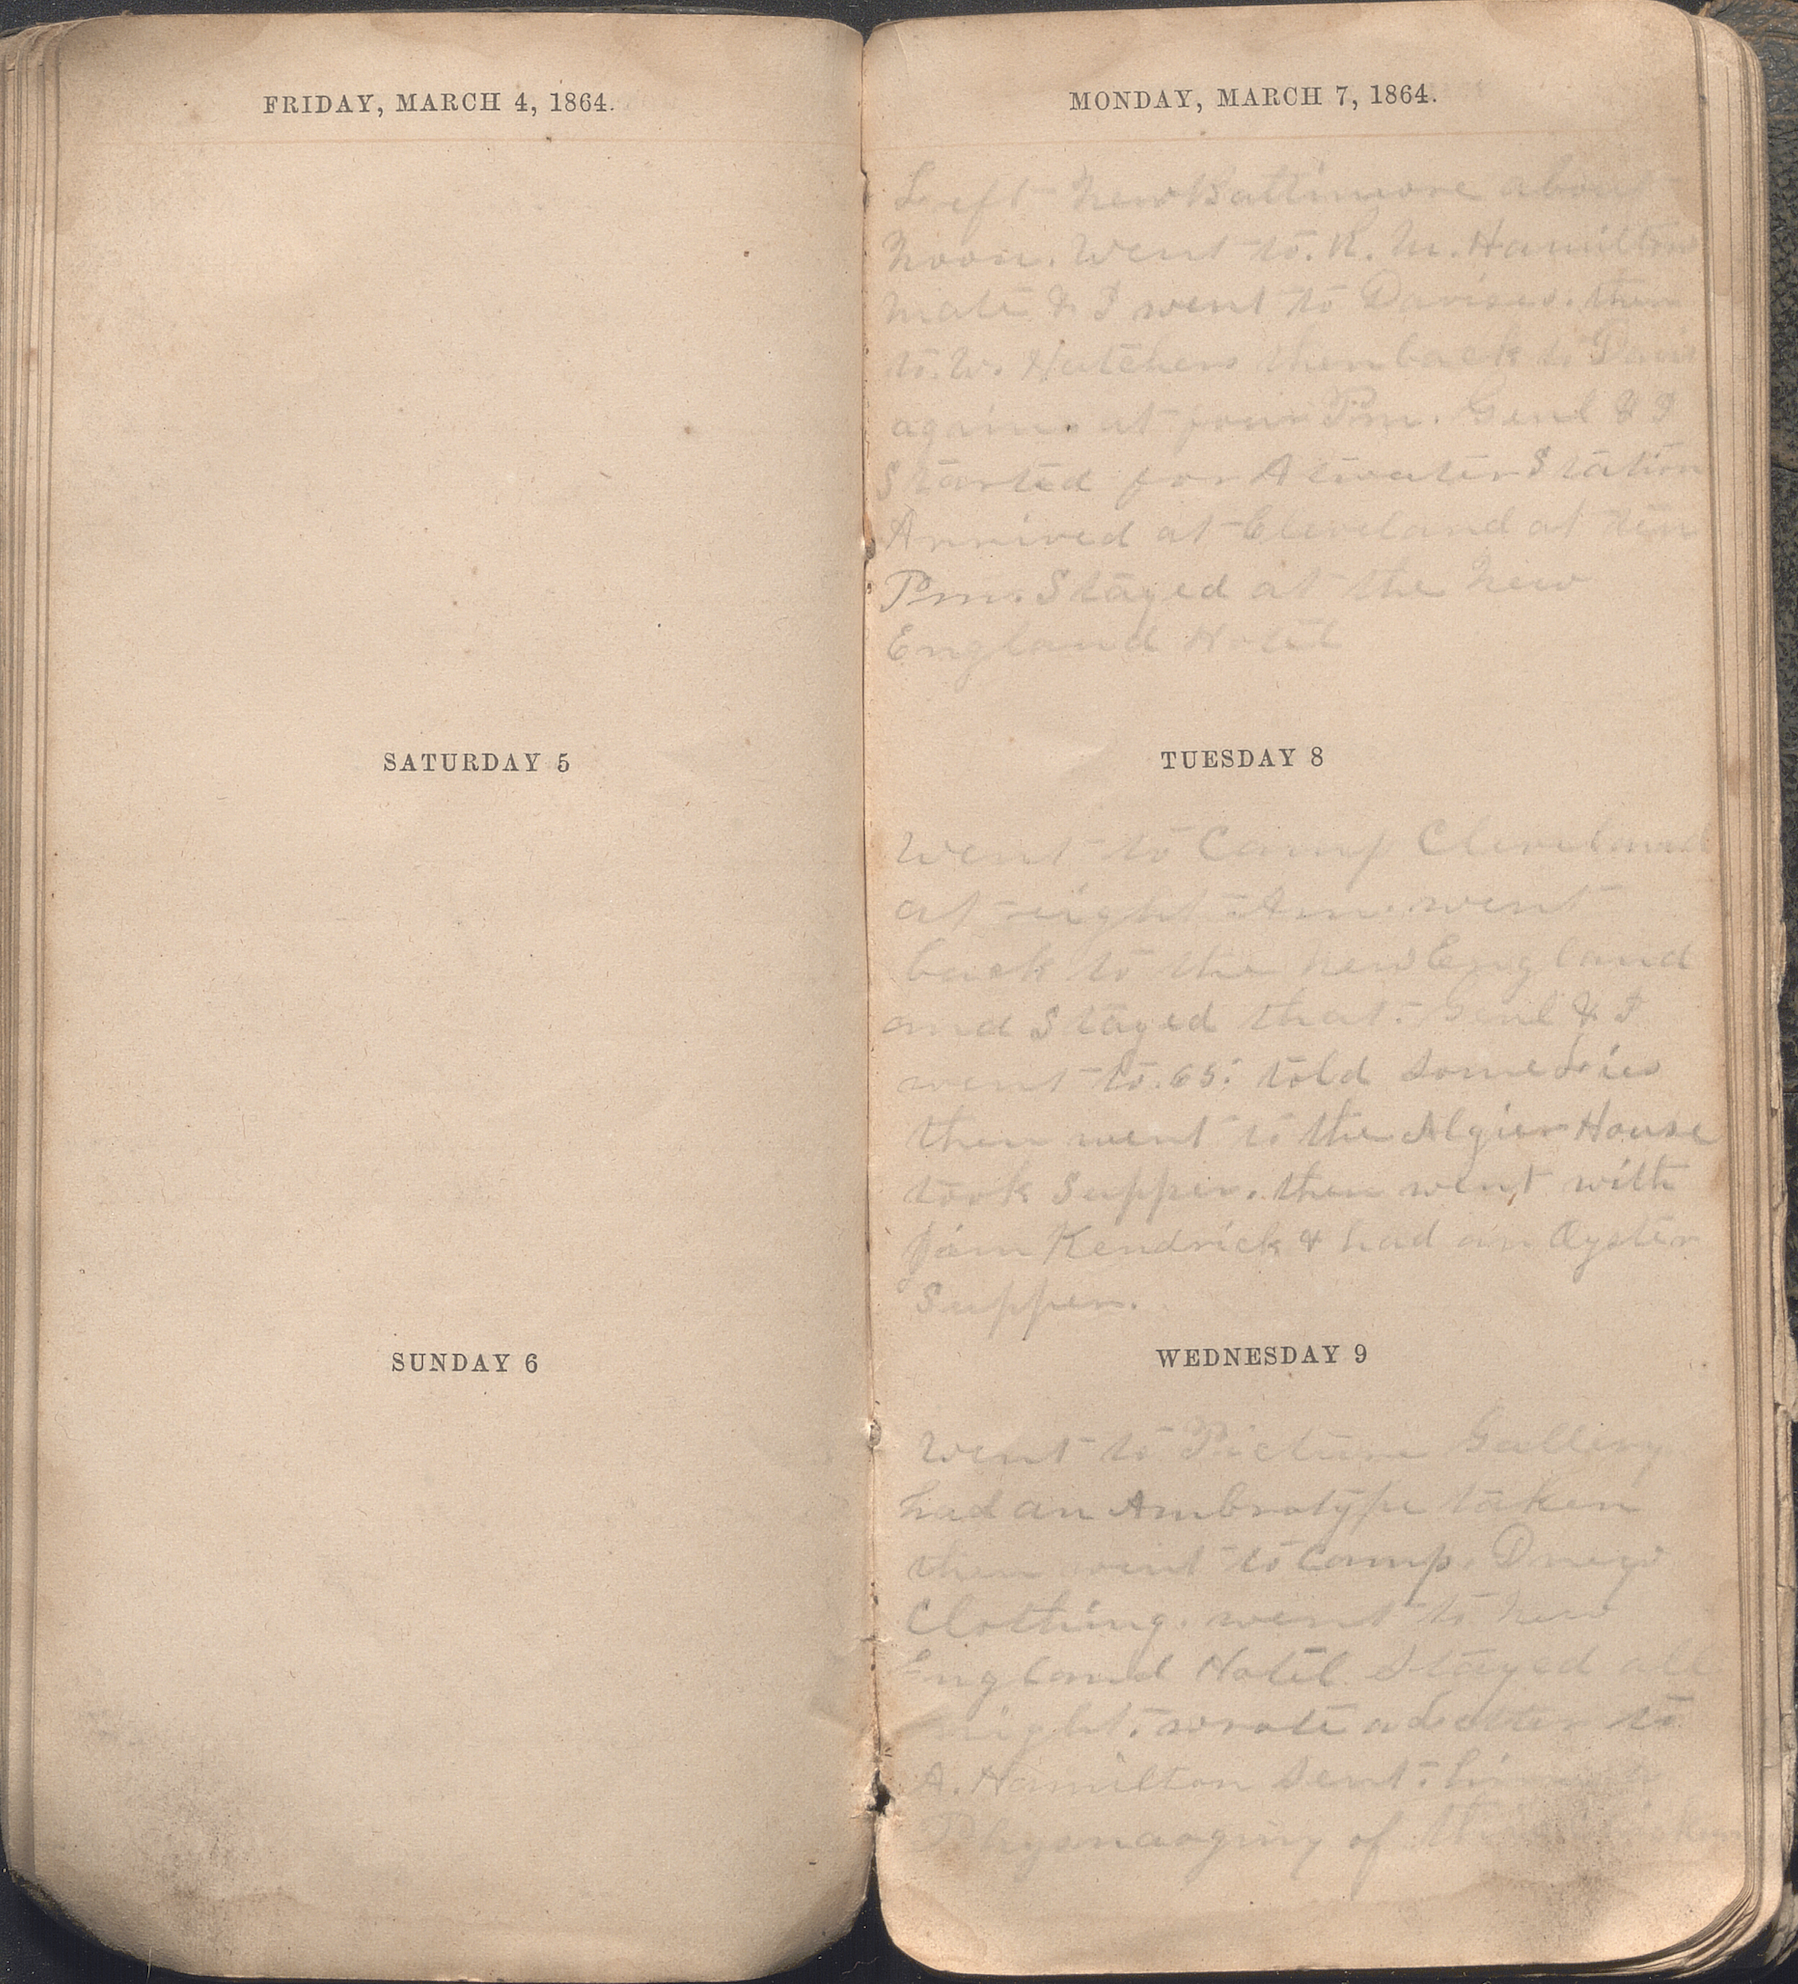 FRIDAY, MARCH 4, 1864.
SATURDAY 5
SUNDAY 6
MONDAY, MARCH 7, 1864.
Left New Baltimore about
Noon. Went to. R. M. Hamilton
Mate & I went to Davises. then
to. W. Hatchers then back to Davis
again. at four Pm. Genl & I
Started for Atwater Station
Arrived at Cleveland at ten
Pm. Stayed at the New
England Hotel
TUESDAY 8
Went to Camp Cleveland
at eight Am. went
back to the New England
and Stayed that. Genl & I
went to. 65. told some Lies
then went to the Algier House
took Supper. then went with
Jam Kendrick & had an Oyster
Supper.
WEDNESDAY 9
Went to Picture Gallery
had an Ambrotype taken
then went to Camp. Drew
Clothing. went to New
England Hotel Stayed all
night. wrote a Letter to
A. Hamilton Sent
of